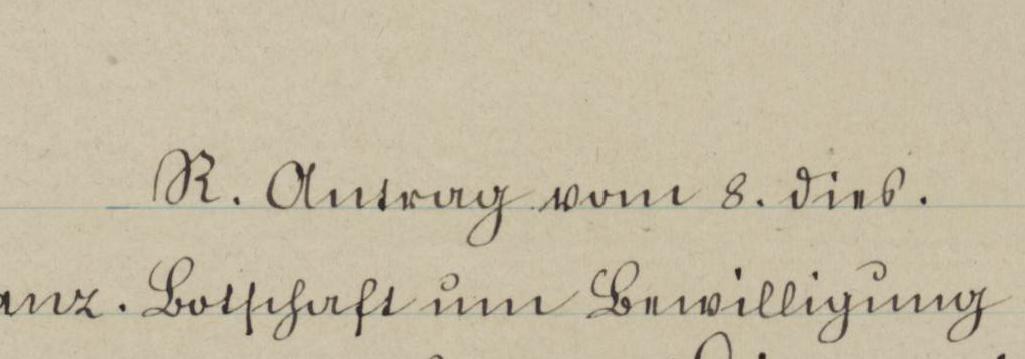 R. Antrag vom 8. dies.
anz. Botschaft um Bewilligung